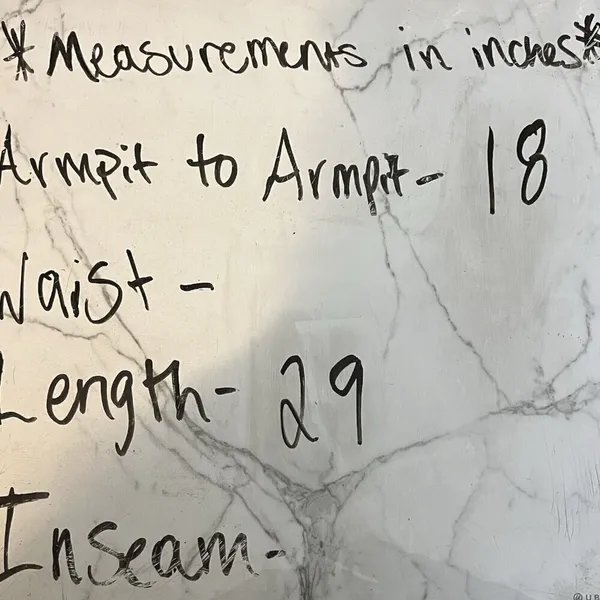 *Measurements in inches*
Armpit to Armpit- 18
Waist -
Length- 29
Inseam-